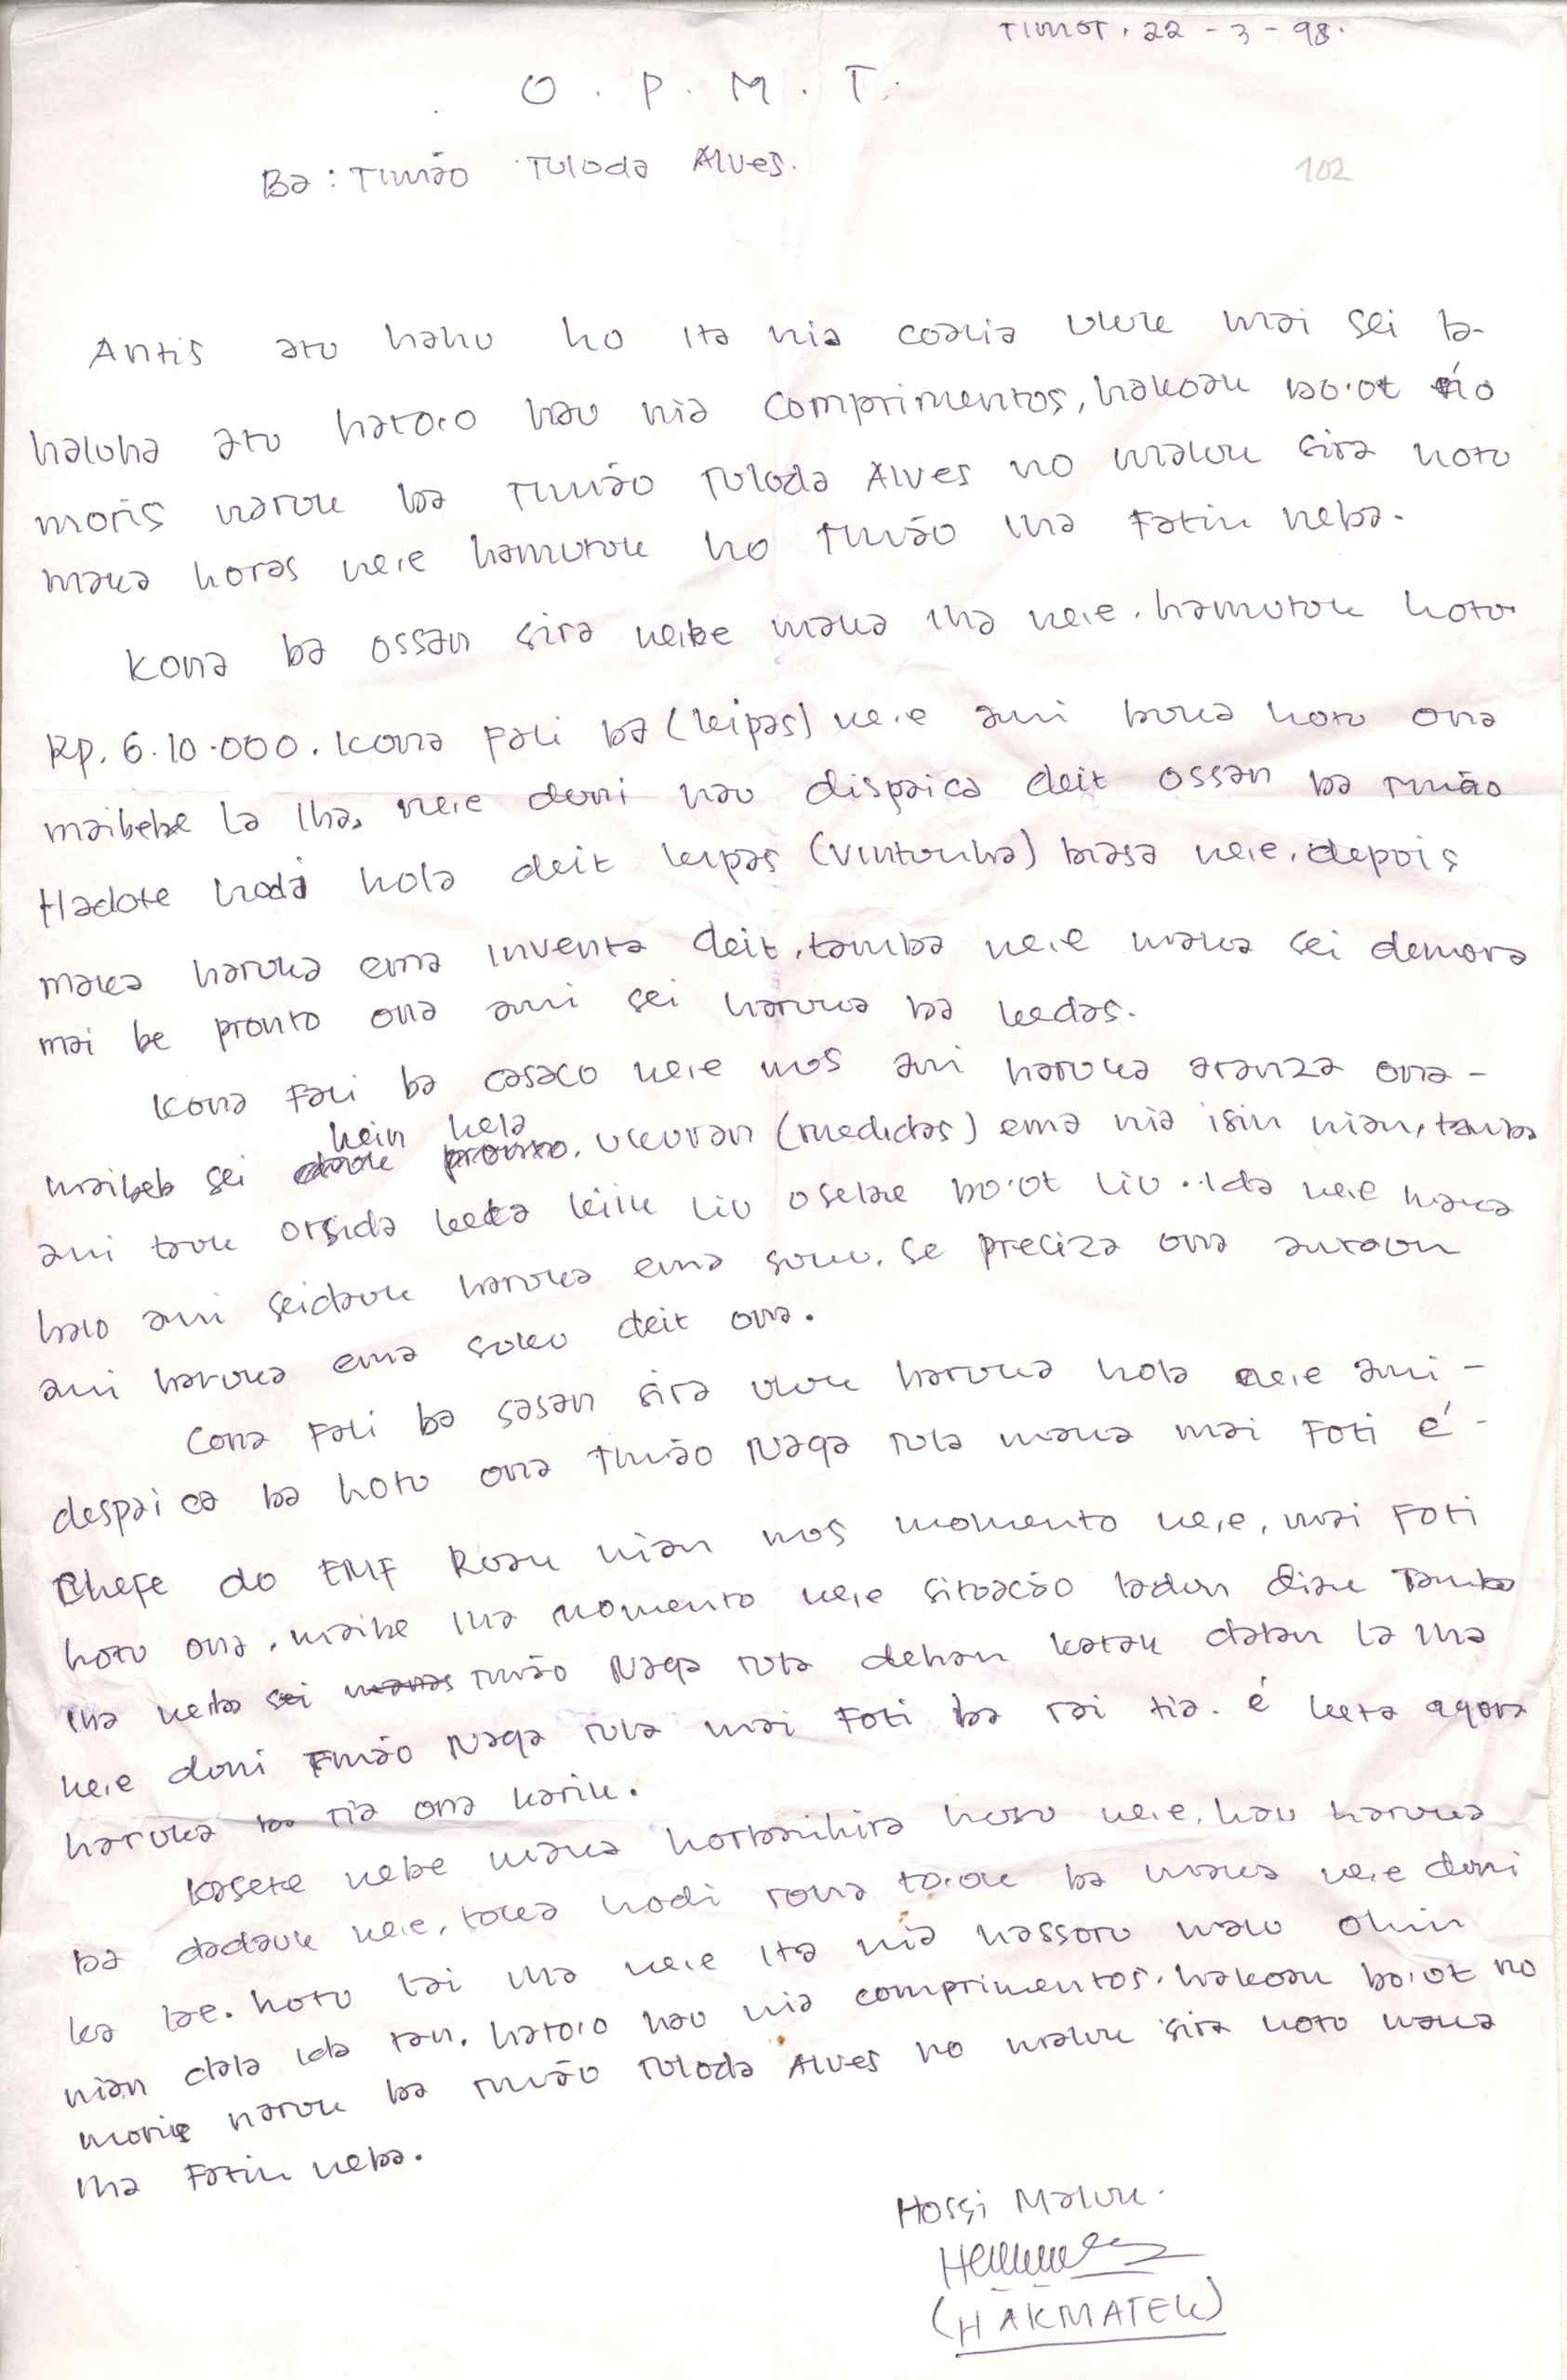 Timor, 22-3-98.
O.P.M.T.
Ba: Timão Tuloda Alves.
102
Antis atu hahu ho ita nia coalia uluk mai sei la-
haluha atu hato'o hau nia comprimentos, hakoak bo'ot no
moris naruk ba Timão Tuloda Alves no maluk sira hotu
maka horas ne'e hamutuk ho Timão iha Fatin neba.
Kona ba ossan sira ne'ebe maka iha ne'e. hamutuk hotu
Rp. 6.10.000. Kona Fali ba (keipas) ne'e ami buka hotu ona
maibebe la iha, ne'e duni hau dispaica deit ossan ba Timão
Hadote hodi hola deit kipas (Vintoinha) biasa ne'e. depois
maka haruka ema inventa deit, tamba ne'e maka sei demora
mai be pronto ona ami sei haruka ba kedas.
Kona Fali ba casaco ne'e mos ami haruka aranza ona-
maibeb sei hein hela, ukuran (medidas) ema nia isin nian, tamba
ami tauk orsida keta kiik liu oselae bo'ot liu. Ida ne'e maka
halo ami seidauk haruka ema suku. se preciza ona
ami haruka ema suku deit ona.
Cona Fali ba sasan sira uluk haruka hola ne'e ami-
despaica ba hotu ona Timão Naga Tula maka mai Foti é-
Chefe do EMF Roak nian mos momento ne'e, mai Foti
hotu ona. maibe iha momento ne'e situacão ladun diak Tamba
iha neba Timão Naga Tula dehan katak dalan la iha
ne'e duni Timão Naga Tula mai Foti ba rai tia. é keta agora
haruka ba tia ona karik.
Kasete nebe maka horbanhira husu ne'e, hau haruka
ba dadauk ne'e, toka hodi rona to'ok ba maka ne'e duni
ka lae. hotu tai iha ne'e ita nia hassoru malu ohin
nian dala ida tan. hato'o hau nia comprimentos. hakoak bo'ot no
moris naruk ba Timão Tuloda Alves no maluk sira hotu maka
iha Fatin neba.
Hossi Maluk.
(HAKMATEK)